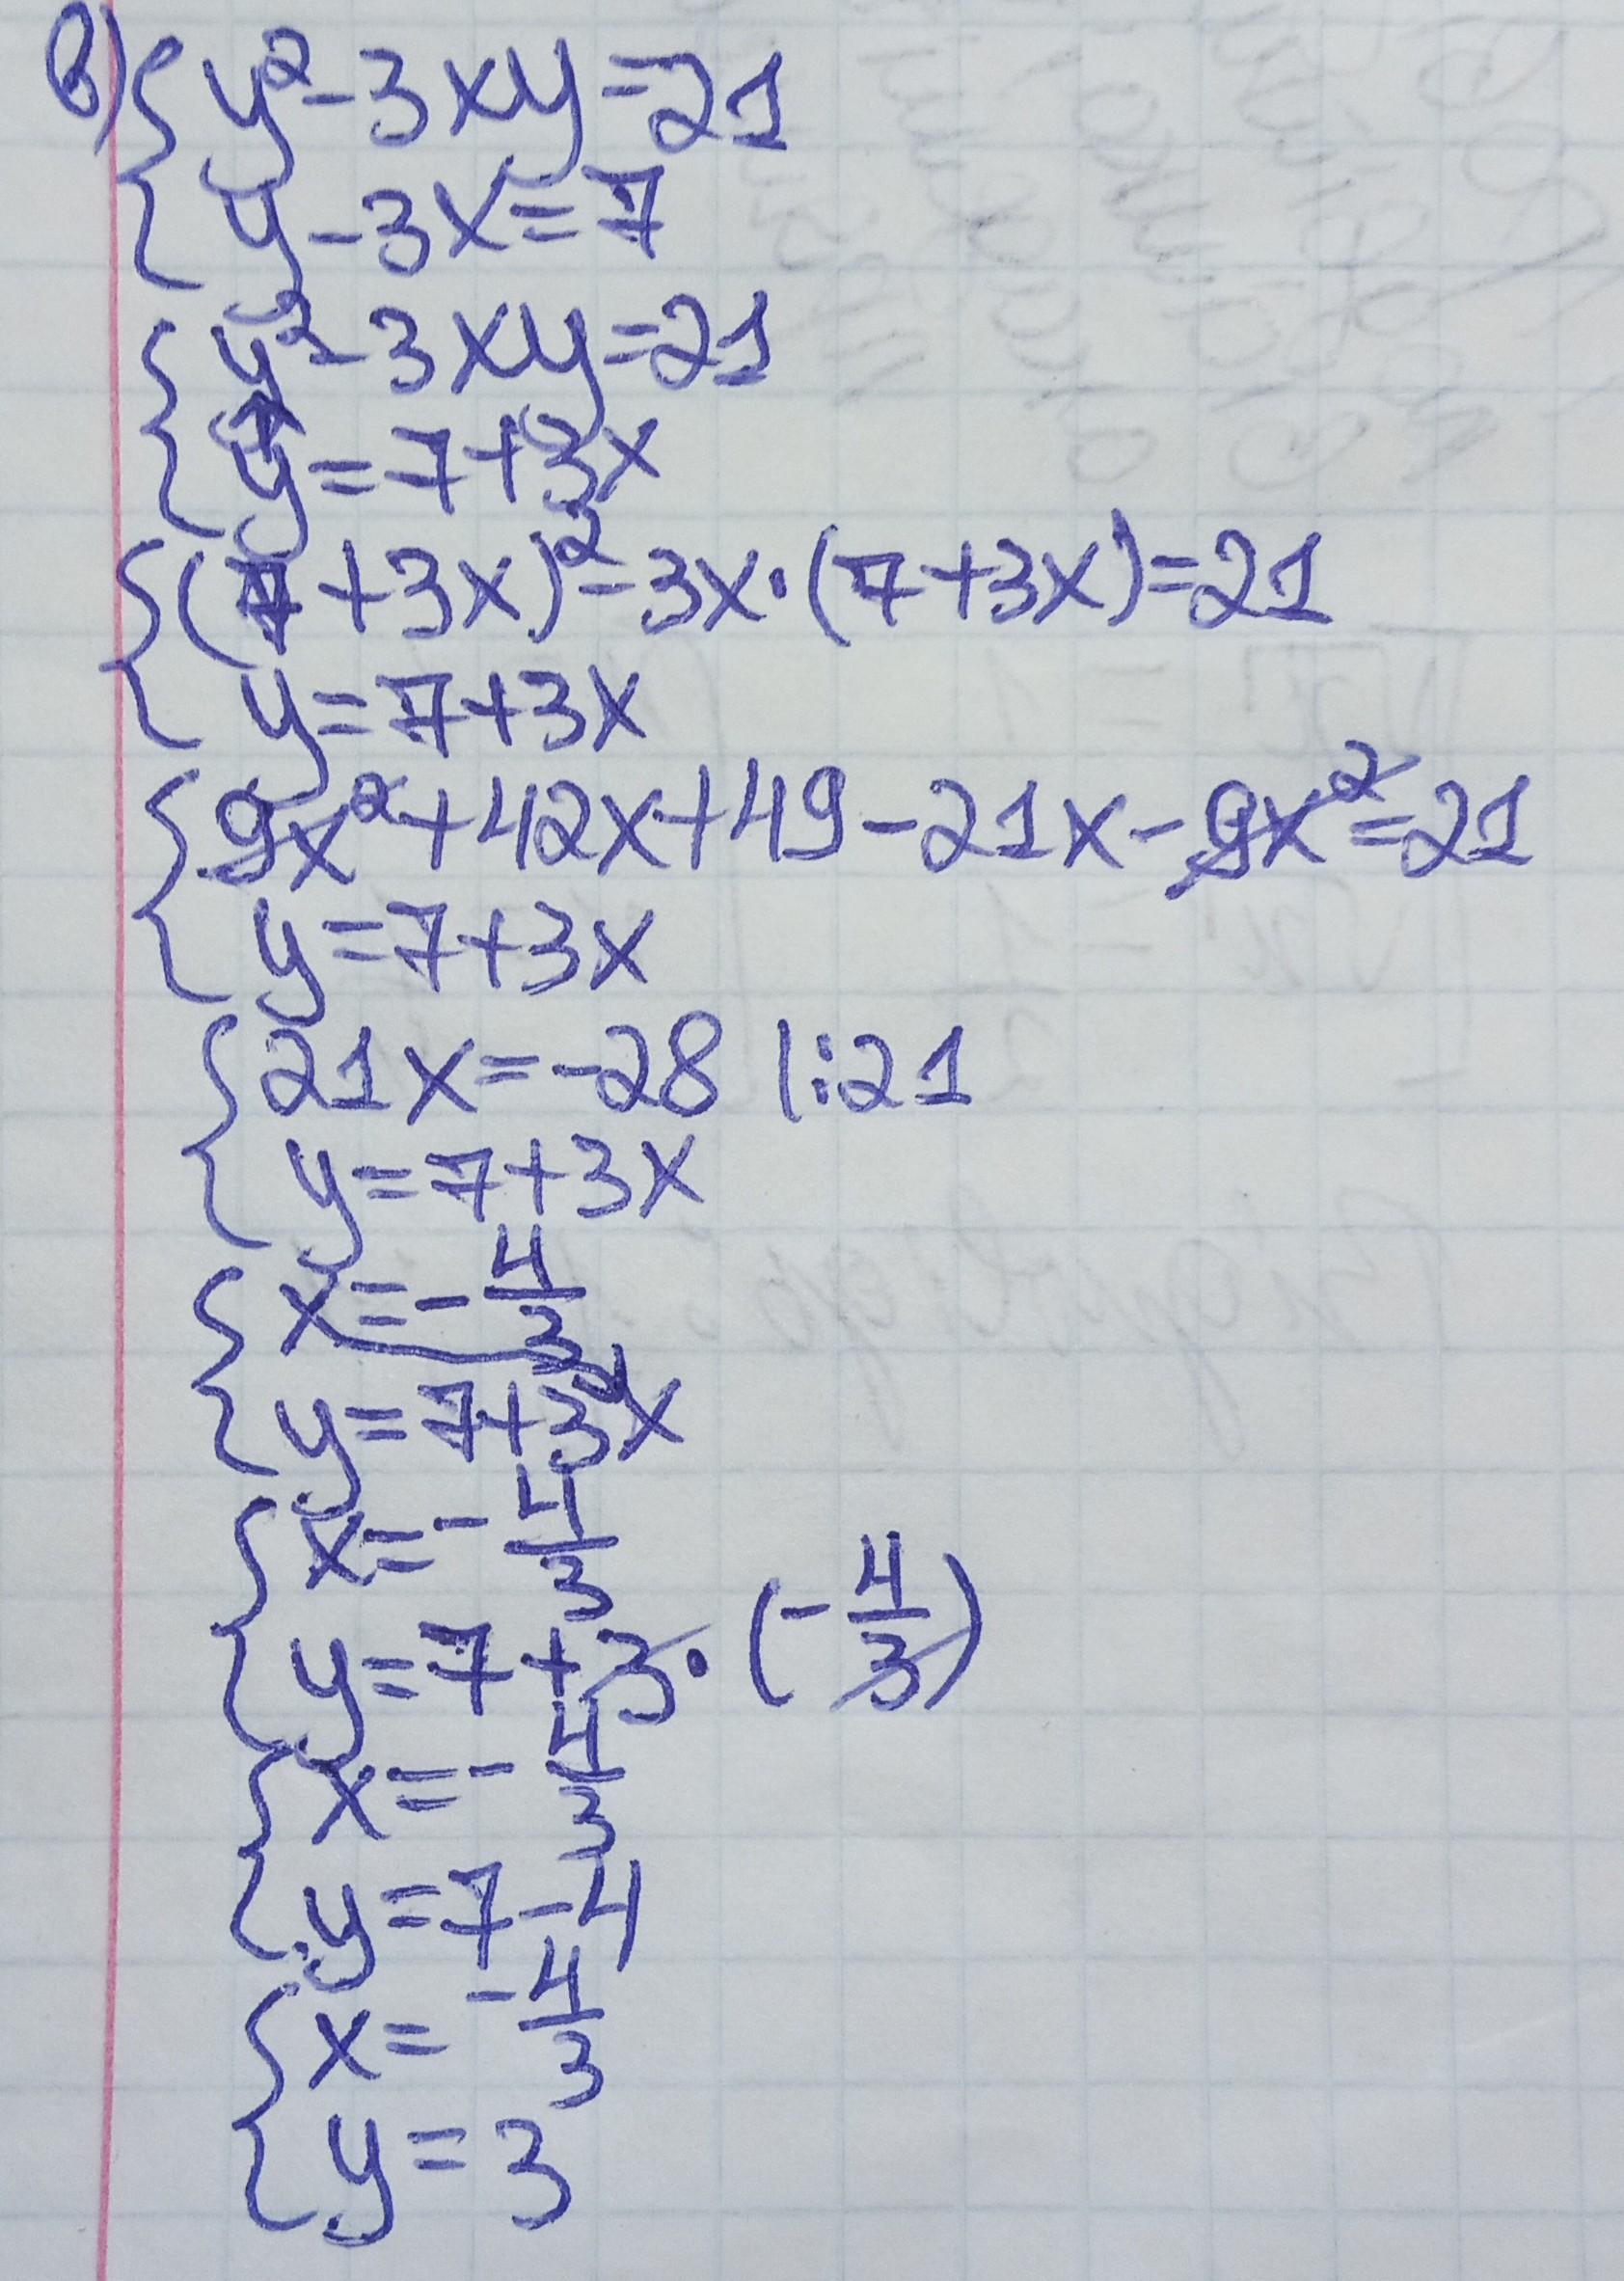 в) { y² - 3xy = 21
{ y - 3x = 7
{ y² - 3xy = 21
{ y = 7 + 3x
{ (7 + 3x)² - 3x · (7 + 3x) = 21
{ y = 7 + 3x
{ 9x² + 42x + 49 - 21x - 9x² = 21
{ y = 7 + 3x
{ 21x = -28 |:21
{ y = 7 + 3x
{ x = - 4/3
{ y = 7 + 3x
{ x = - 4/3
{ y = 7 + 3 · (- 4/3)
{ x = - 4/3
{ y = 7 - 4
{ x = - 4/3
{ y = 3